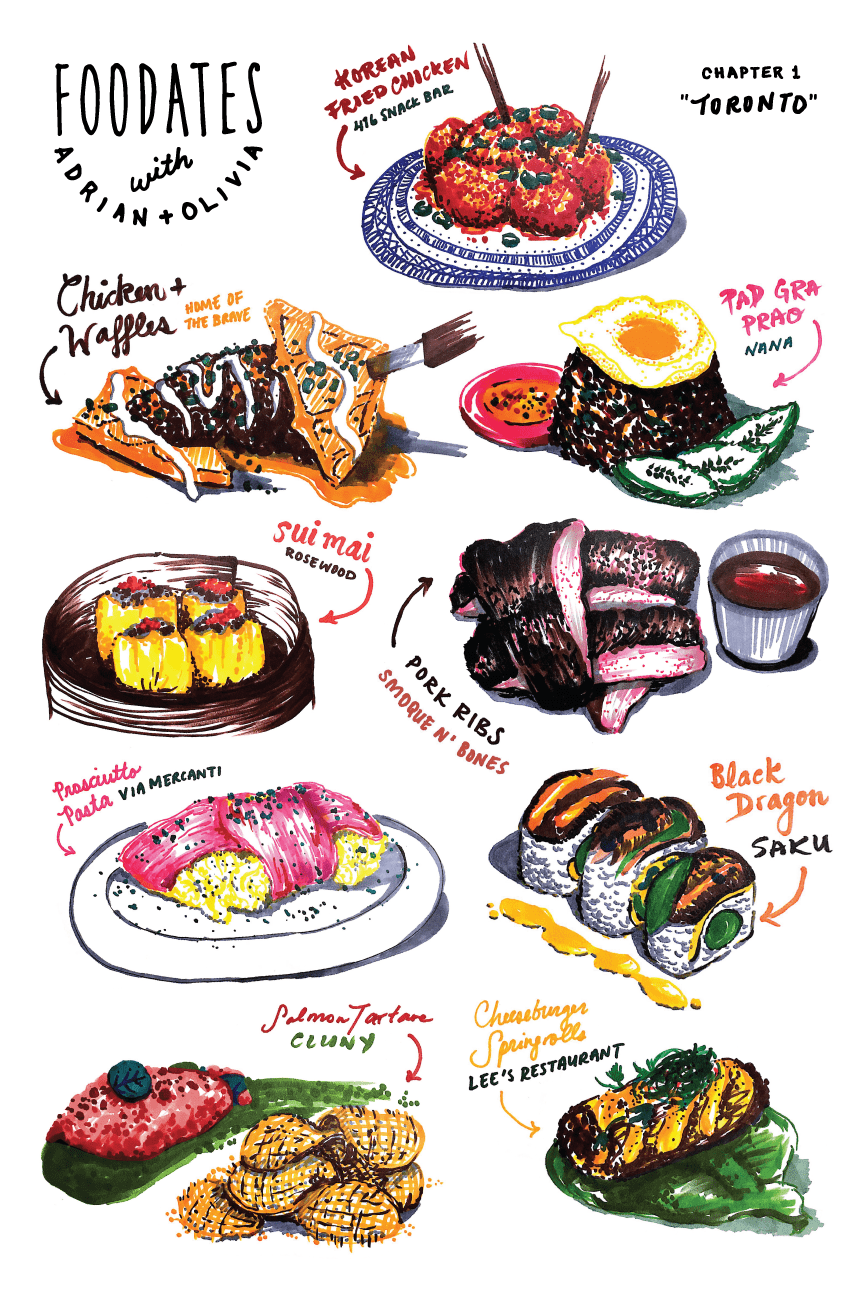 FOODATES
with
ADRIAN + OLIVIA
KOREAN
FRIED CHICKEN
416 SNACK BAR
CHAPTER 1
"TORONTO"
Chicken +
Waffles
HOME OF
THE BRAVE
PAD GRA
PRAO
NANA
sui mai
ROSEWOOD
PORK RIBS
SMOQUE N' BONES
Prosciutto
Pasta VIA MERCANTI
Black
Dragon
SAKU
Salmon Tartare
CLUNY
Cheeseburger
Springrolls
LEE'S RESTAURANT